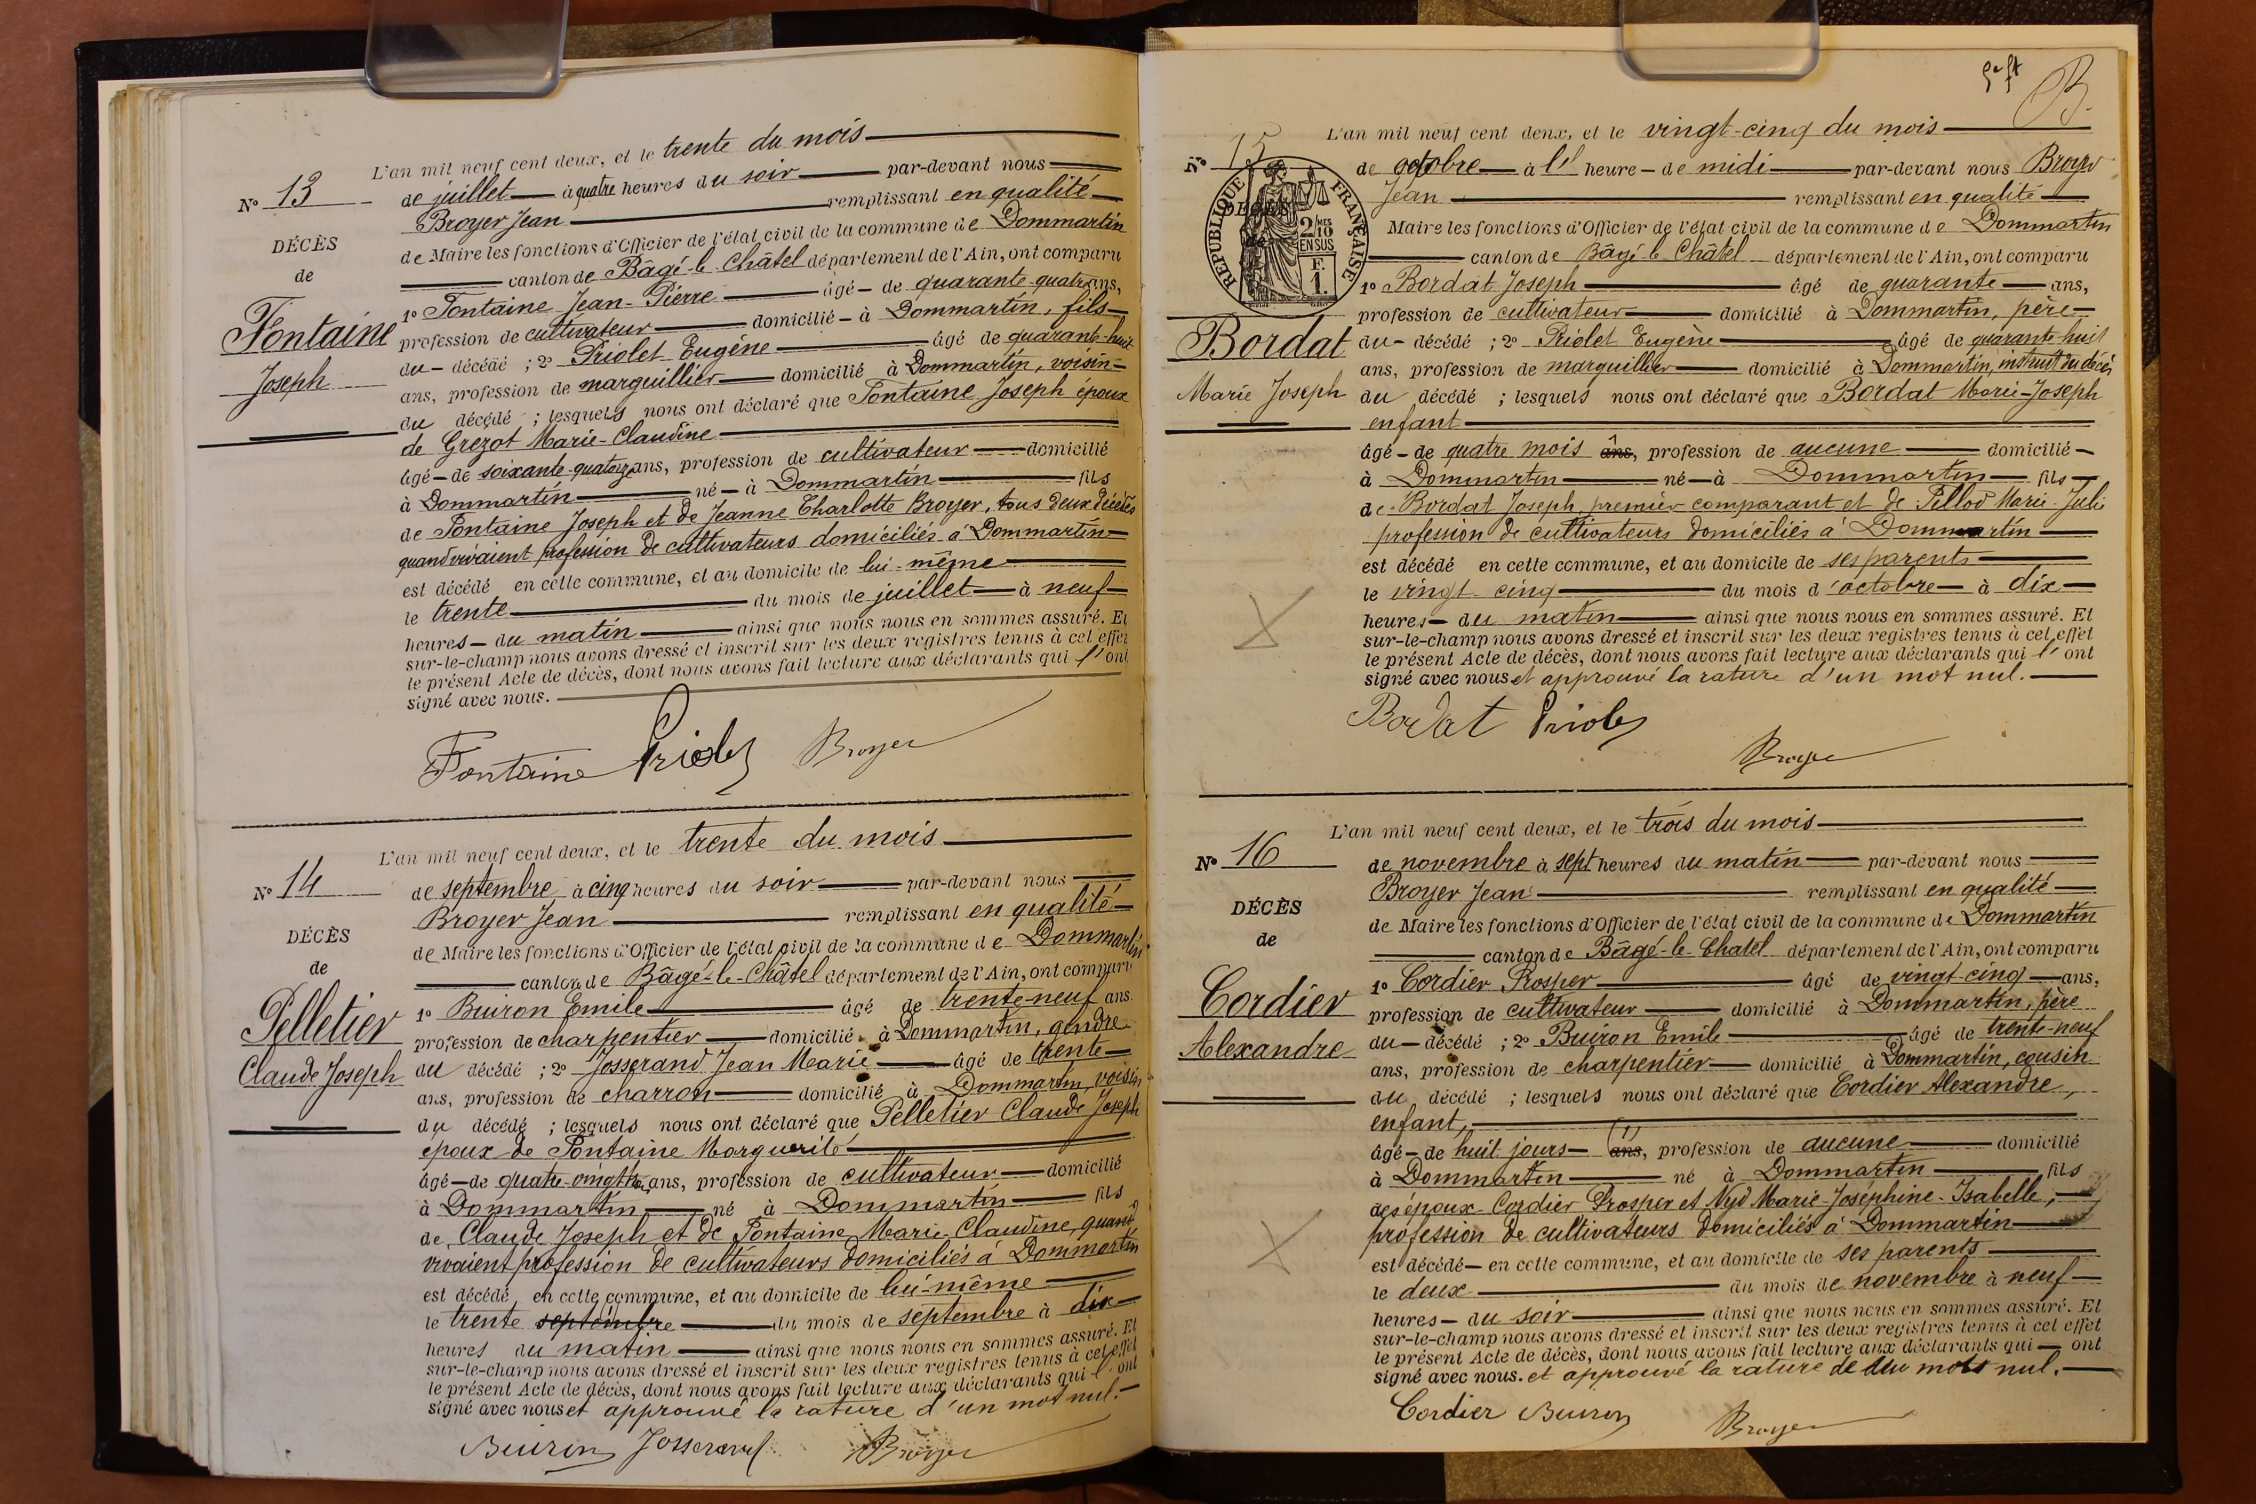 L'an mil neuf cent deux, et le trente du mois
Nº 13
de juillet à quatre heures du soir par-devant nous
Broyer Jean remplissant en qualité
DÉCÈS
de Maire les fonctions d'Officier de l'état civil de la commune de Dommartin
de
canton de Bâgé-le-Châtel département de l'Ain, ont comparu
Fontaine
1º Fontaine Jean-Pierre âgé de quarante-quatre ans,
profession de cultivateur domicilié à Dommartin, fils
Joseph
du décédé ; 2º Priolet Eugène âgé de quarante-huit
ans, profession de marguillier domicilié à Dommartin, voisin
du décédé ; lesquels nous ont déclaré que Fontaine Joseph époux
de Grezot Marie-Claudine
âgé de soixante-quatorze ans, profession de cultivateur domicilié
à Dommartin né à Dommartin fils
de Fontaine Joseph et de Jeanne Charlotte Broyer, tous deux décédés
quand vivaient profession de cultivateurs domiciliés à Dommartin
est décédé en cette commune, et au domicile de lui-même
le trente du mois de juillet à neuf
heures du matin ainsi que nous nous en sommes assuré. Et
sur-le-champ nous avons dressé et inscrit sur les deux registres tenus à cet effet
le présent Acte de décès, dont nous avons fait lecture aux déclarants qui l'ont
signé avec nous.
Fontaine Priolet Broyer
L'an mil neuf cent deux, et le trente du mois
Nº 14
de septembre à cinq heures du soir par-devant nous
Broyer Jean remplissant en qualité
DÉCÈS
de Maire les fonctions d'Officier de l'état civil de la commune de Dommartin
de
canton de Bâgé-le-Châtel département de l'Ain, ont comparu
Pelletier
1º Buiron Emile âgé de trente-neuf ans
profession de charpentier domicilié à Dommartin, gendre
Claude Joseph
du décédé ; 2º Josserand Jean Marie âgé de trente
ans, profession de charron domicilié à Dommartin, voisin
du décédé ; lesquels nous ont déclaré que Pelletier Claude Joseph
époux de Fontaine Marguerite
âgé de quatre-vingt ans, profession de cultivateur domicilié
à Dommartin né à Dommartin fils
de Claude Joseph et de Fontaine Marie Claudine, quand
vivaient profession de cultivateurs domiciliés à Dommartin
est décédé en cette commune, et au domicile de lui-même
le trente septembre du mois de septembre à dix
heures du matin ainsi que nous nous en sommes assuré. Et
sur-le-champ nous avons dressé et inscrit sur les deux registres tenus à cet effet
le présent Acte de décès, dont nous avons fait lecture aux déclarants qui l'ont
signé avec nous et approuvé la rature d'un mot nul.
Buiron Josserand Broyer
B.
L'an mil neuf cent deux, et le vingt-cinq du mois
Nº 15
de octobre à l'1 heure de midi par-devant nous Broyer
Jean remplissant en qualité
RÉPUBLIQUE FRANÇAISE
2/10 EN SUS
F. 1.
Maire les fonctions d'Officier de l'état civil de la commune de Dommartin
canton de Bâgé-le-Châtel département de l'Ain, ont comparu
1º Bordat Joseph âgé de quarante ans,
profession de cultivateur domicilié à Dommartin, père
Bordat
du décédé ; 2º Priolet Eugène âgé de quarante huit
ans, profession de marguillier domicilié à Dommartin, instruit du décès
Marie Joseph
du décédé ; lesquels nous ont déclaré que Bordat Marie-Joseph
enfant
âgé de quatre mois ans, profession de aucune domicilié
à Dommartin né à Dommartin fils
de Bordat Joseph, premier comparant et de Pillod Marie-Julie
profession de cultivateurs domiciliés à Dommartin
est décédé en cette commune, et au domicile de ses parents
le vingt-cinq du mois d'octobre à dix
heures du matin ainsi que nous nous en sommes assuré. Et
sur-le-champ nous avons dressé et inscrit sur les deux registres tenus à cet effet
le présent Acte de décès, dont nous avons fait lecture aux déclarants qui l'ont
signé avec nous et approuvé la rature d'un mot nul.
Bordat Priolet
Broyer
L'an mil neuf cent deux, et le trois du mois
Nº 16
de novembre à sept heures du matin par-devant nous
Broyer Jean remplissant en qualité
DÉCÈS
de Maire les fonctions d'Officier de l'état civil de la commune de Dommartin
de
canton de Bâgé-le-Chatel département de l'Ain, ont comparu
Cordier
1º Cordier Prosper âgé de vingt-cinq ans,
profession de cultivateur domicilié à Dommartin, père
Alexandre
du décédé ; 2º Buiron Emile âgé de trente-neuf
ans, profession de charpentier domicilié à Dommartin, cousin
du décédé ; lesquels nous ont déclaré que Cordier Alexandre,
enfant,
âgé de huit jours ans, profession de aucune domicilié
à Dommartin né à Dommartin fils
des époux Cordier Prosper et Nyd Marie-Joséphine-Isabelle,
profession de cultivateurs domiciliés à Dommartin
est décédé en cette commune, et au domicile de ses parents
le deux du mois de novembre à neuf
heures du soir ainsi que nous nous en sommes assuré. Et
sur-le-champ nous avons dressé et inscrit sur les deux registres tenus à cet effet
le présent Acte de décès, dont nous avons fait lecture aux déclarants qui ont
signé avec nous. et approuvé la rature de mots nul.
Cordier Buiron Broyer